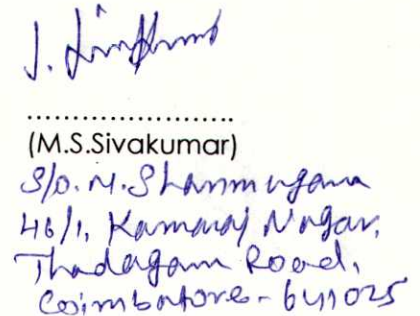 ........................
(M.S.Sivakumar)
S/o. M. Shanmugam
46/1, Kamaraj Nagar,
Thadagam Road,
Coimbatore - 641025